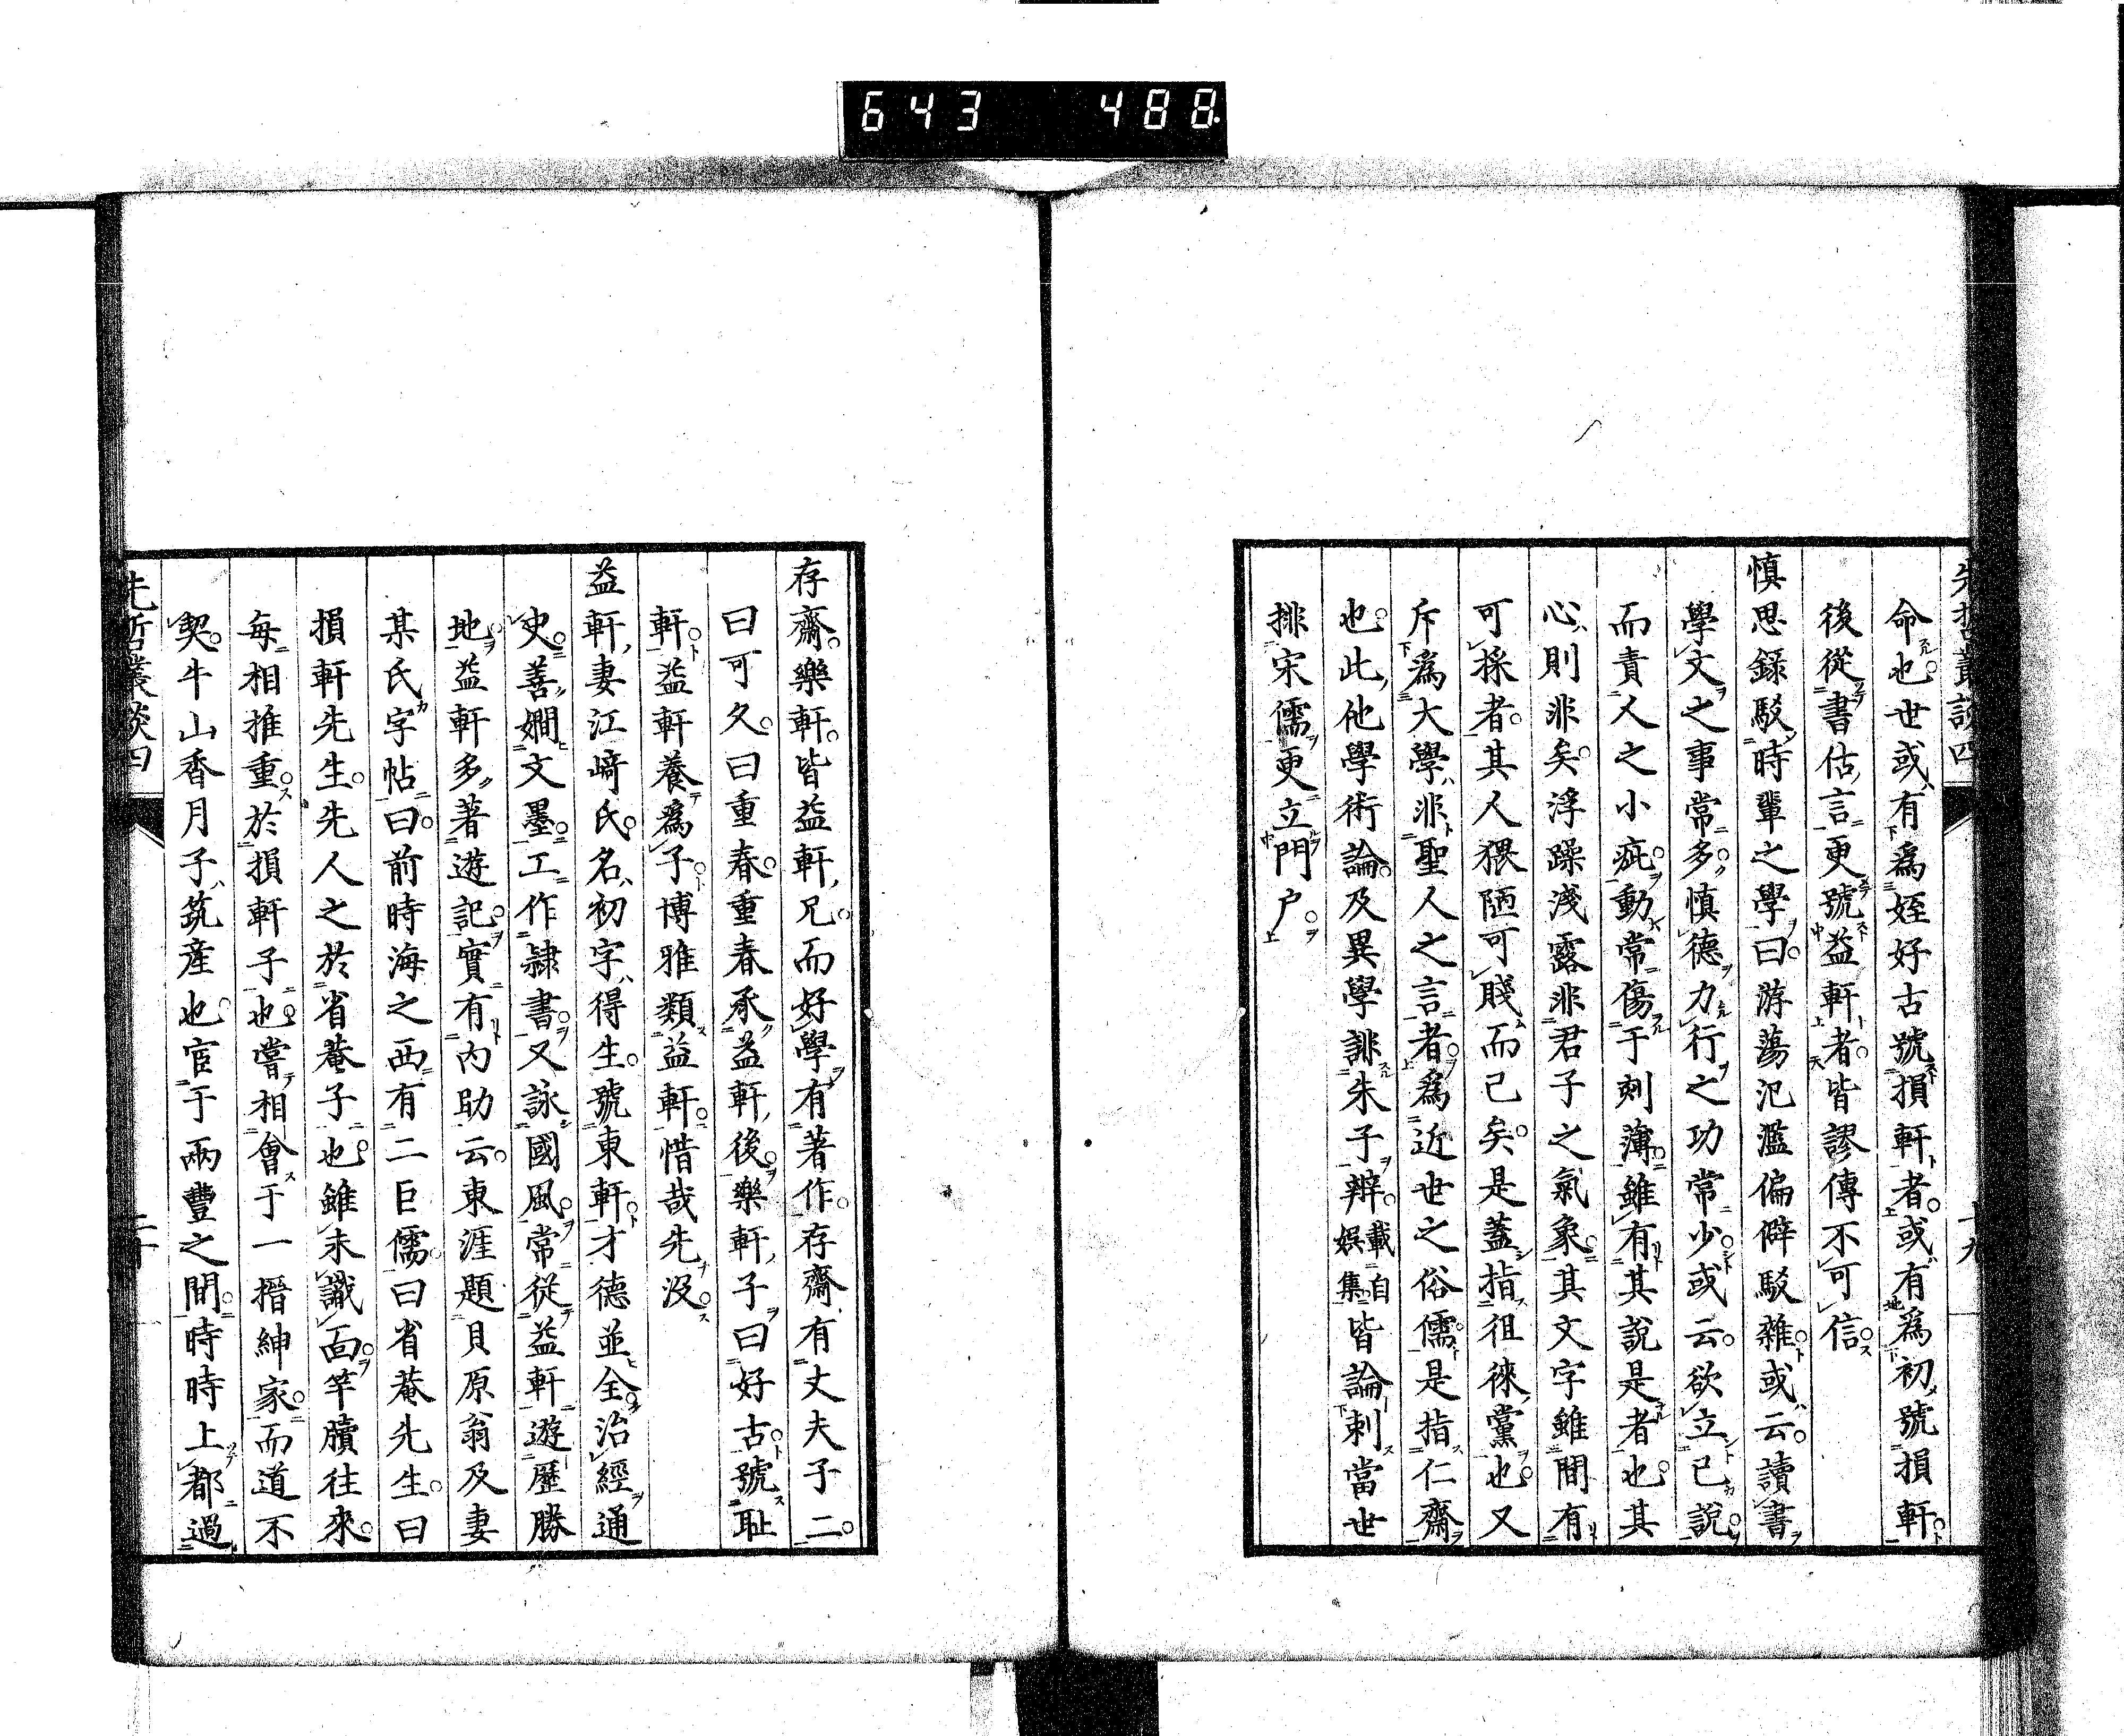 643 488
先哲叢談四 十九
命也世或有爲姪好古號損軒者或有爲初號損軒
後從書估言更號益軒者皆謬傳不可信
愼思錄駁時輩之學曰游蕩氾濫偏僻駁雜或云讀書
學文之事常多愼德力行之功常少或云欲立己說
而責人之小疵動常傷于刻薄雖有其說是者也其
心則非矣浮躁淺露非君子之氣象其文字雖間有
可採者其人猥陋可賤而已矣是蓋指徂徠黨也又
斥爲大學非聖人之言者爲近世之俗儒是指仁齋
也此他學術論及異學誹朱子辨載自娯集皆論刺當世
排宋儒更立門戶
存齋樂軒皆益軒兄而好學有著作存齋有丈夫子二
曰可久曰重春重春承益軒後樂軒子曰好古號耻
軒益軒養爲子博雅類益軒惜哉先沒
益軒妻江﨑氏名初字得生號東軒才德並全治經通
史善嫺文墨工作隷書又詠國風常從益軒遊歷勝
地益軒多著遊記實有內助云東涯題貝原翁及妻
某氏字帖曰前時海之西有二巨儒曰省菴先生曰
損軒先生先人之於省菴子也雖未識面竿牘往來
每相推重於損軒子也嘗相會于一搢紳家而道不
契牛山香月子筑產也宦于兩豐之間時時上都過
先哲叢談四